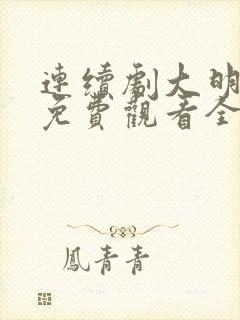 連續劇大明
免費觀看全
鳳青青